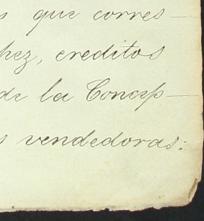 s que corres-
hez, creditos
de la Concep-
s vendedoras: